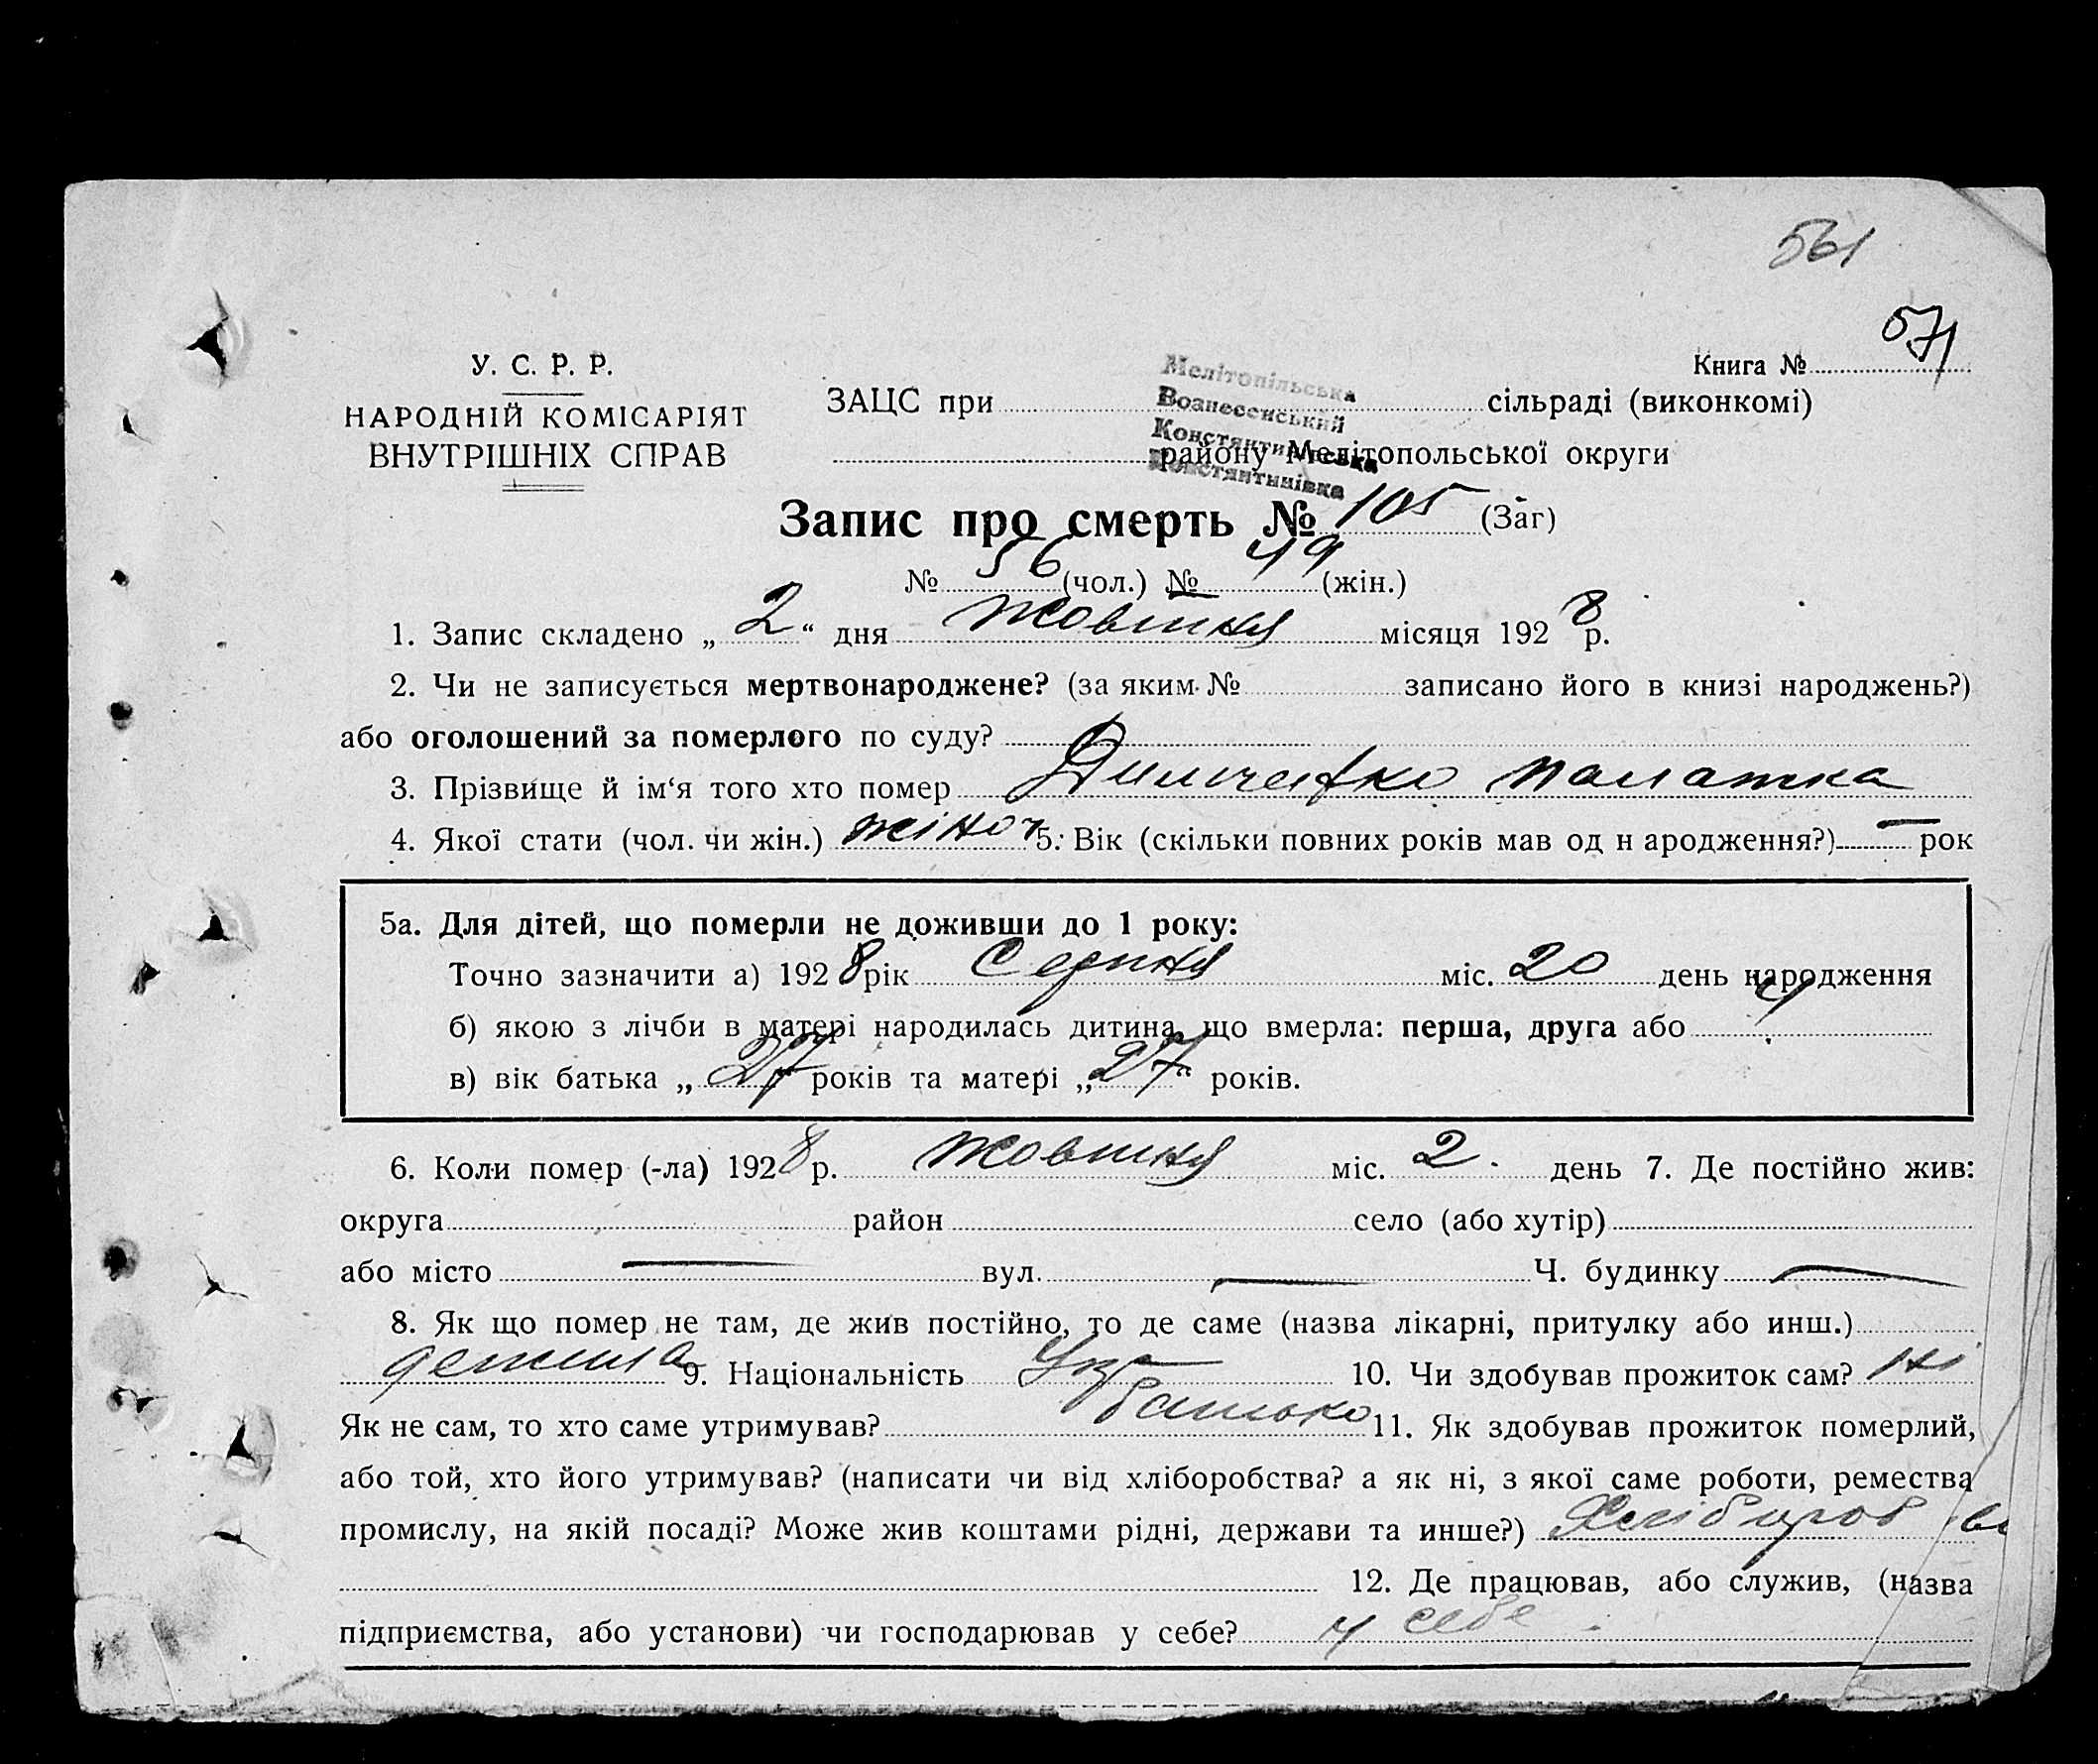 561
571
У. С. Р. Р.
Книга №
НАРОДНІЙ КОМІСАРІЯТ
ВНУТРІШНІХ СПРАВ
ЗАЦС при сільраді (виконкомі)
Мелітопільська
Вознесенський
Констянтинівська
Констянтинівка
району Мелітопольської округи
Запис про смерть № 105 (Заг)
№ 56 (чол.) № 49 (жін.)
1. Запис складено „ 2 “ дня Жовтня місяця 1928 р.
2. Чи не записується мертвонароджене? (за яким № записано його в книзі народжень?)
або оголошений за померлого по суду?
3. Прізвище й ім‘я того хто помер
4. Якої стати (чол. чи жін.) жіноч 5. Вік (скільки повних років мав од н ародження?) — рок
5а. Для дітей, що померли не доживши до 1 року:
Точно зазначити а) 1928 рік Серпня міс. 20 день народження
б) якою з лічби в матері народилась дитина, що вмерла: перша, друга або 4
в) вік батька „ 27 років та матері „ 27 “ років.
6. Коли помер (-ла) 1928 р. Жовтня міс. 2 день 7. Де постійно жив:
округа район село (або хутір)
або місто — вул. — Ч. будинку —
8. Як що помер не там, де жив постійно, то де саме (назва лікарні, притулку або инш.)
9. Національність Укр 10. Чи здобував прожиток сам? ні
Як не сам, то хто саме утримував? батько 11. Як здобував прожиток померлий,
або той, хто його утримував? (написати чи від хліборобства? а як ні, з якої саме роботи, ремества
промислу, на якій посаді? Може жив коштами рідні, держави та инше?)
12. Де працював, або служив, (назва
підприємства, або установи) чи господарював у себе? у себе